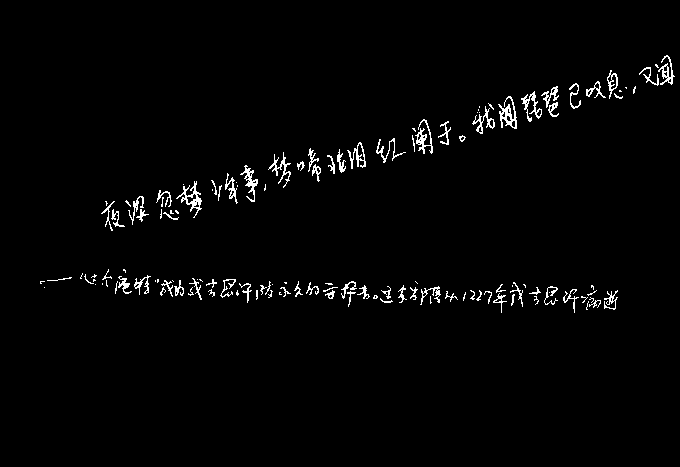 夜深忽梦少年事,梦啼妆泪红阑干。我闻琵琶已叹息,又闻
一"这个鹿特"成为成吉思汗陵永久的守护者。这支部落从1227年成吉思汗病逝